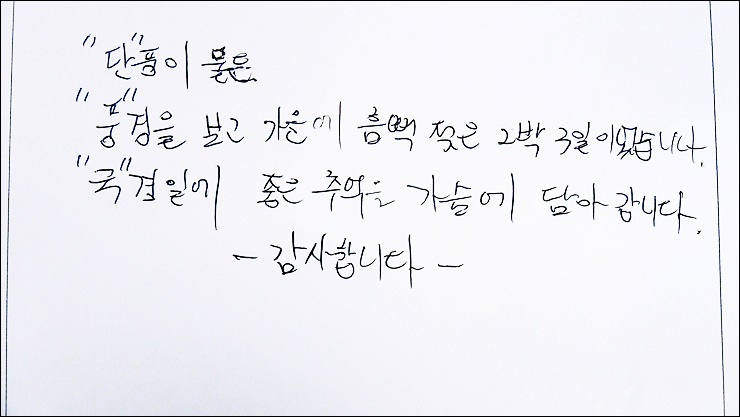 "단"풍이 물든
"풍"경을 보고 가을에 흠뻑 젖은 2박 3일이였습니다.
"국"경일에 좋은 추억을 가슴에 담아 갑니다.
- 감사합니다 -